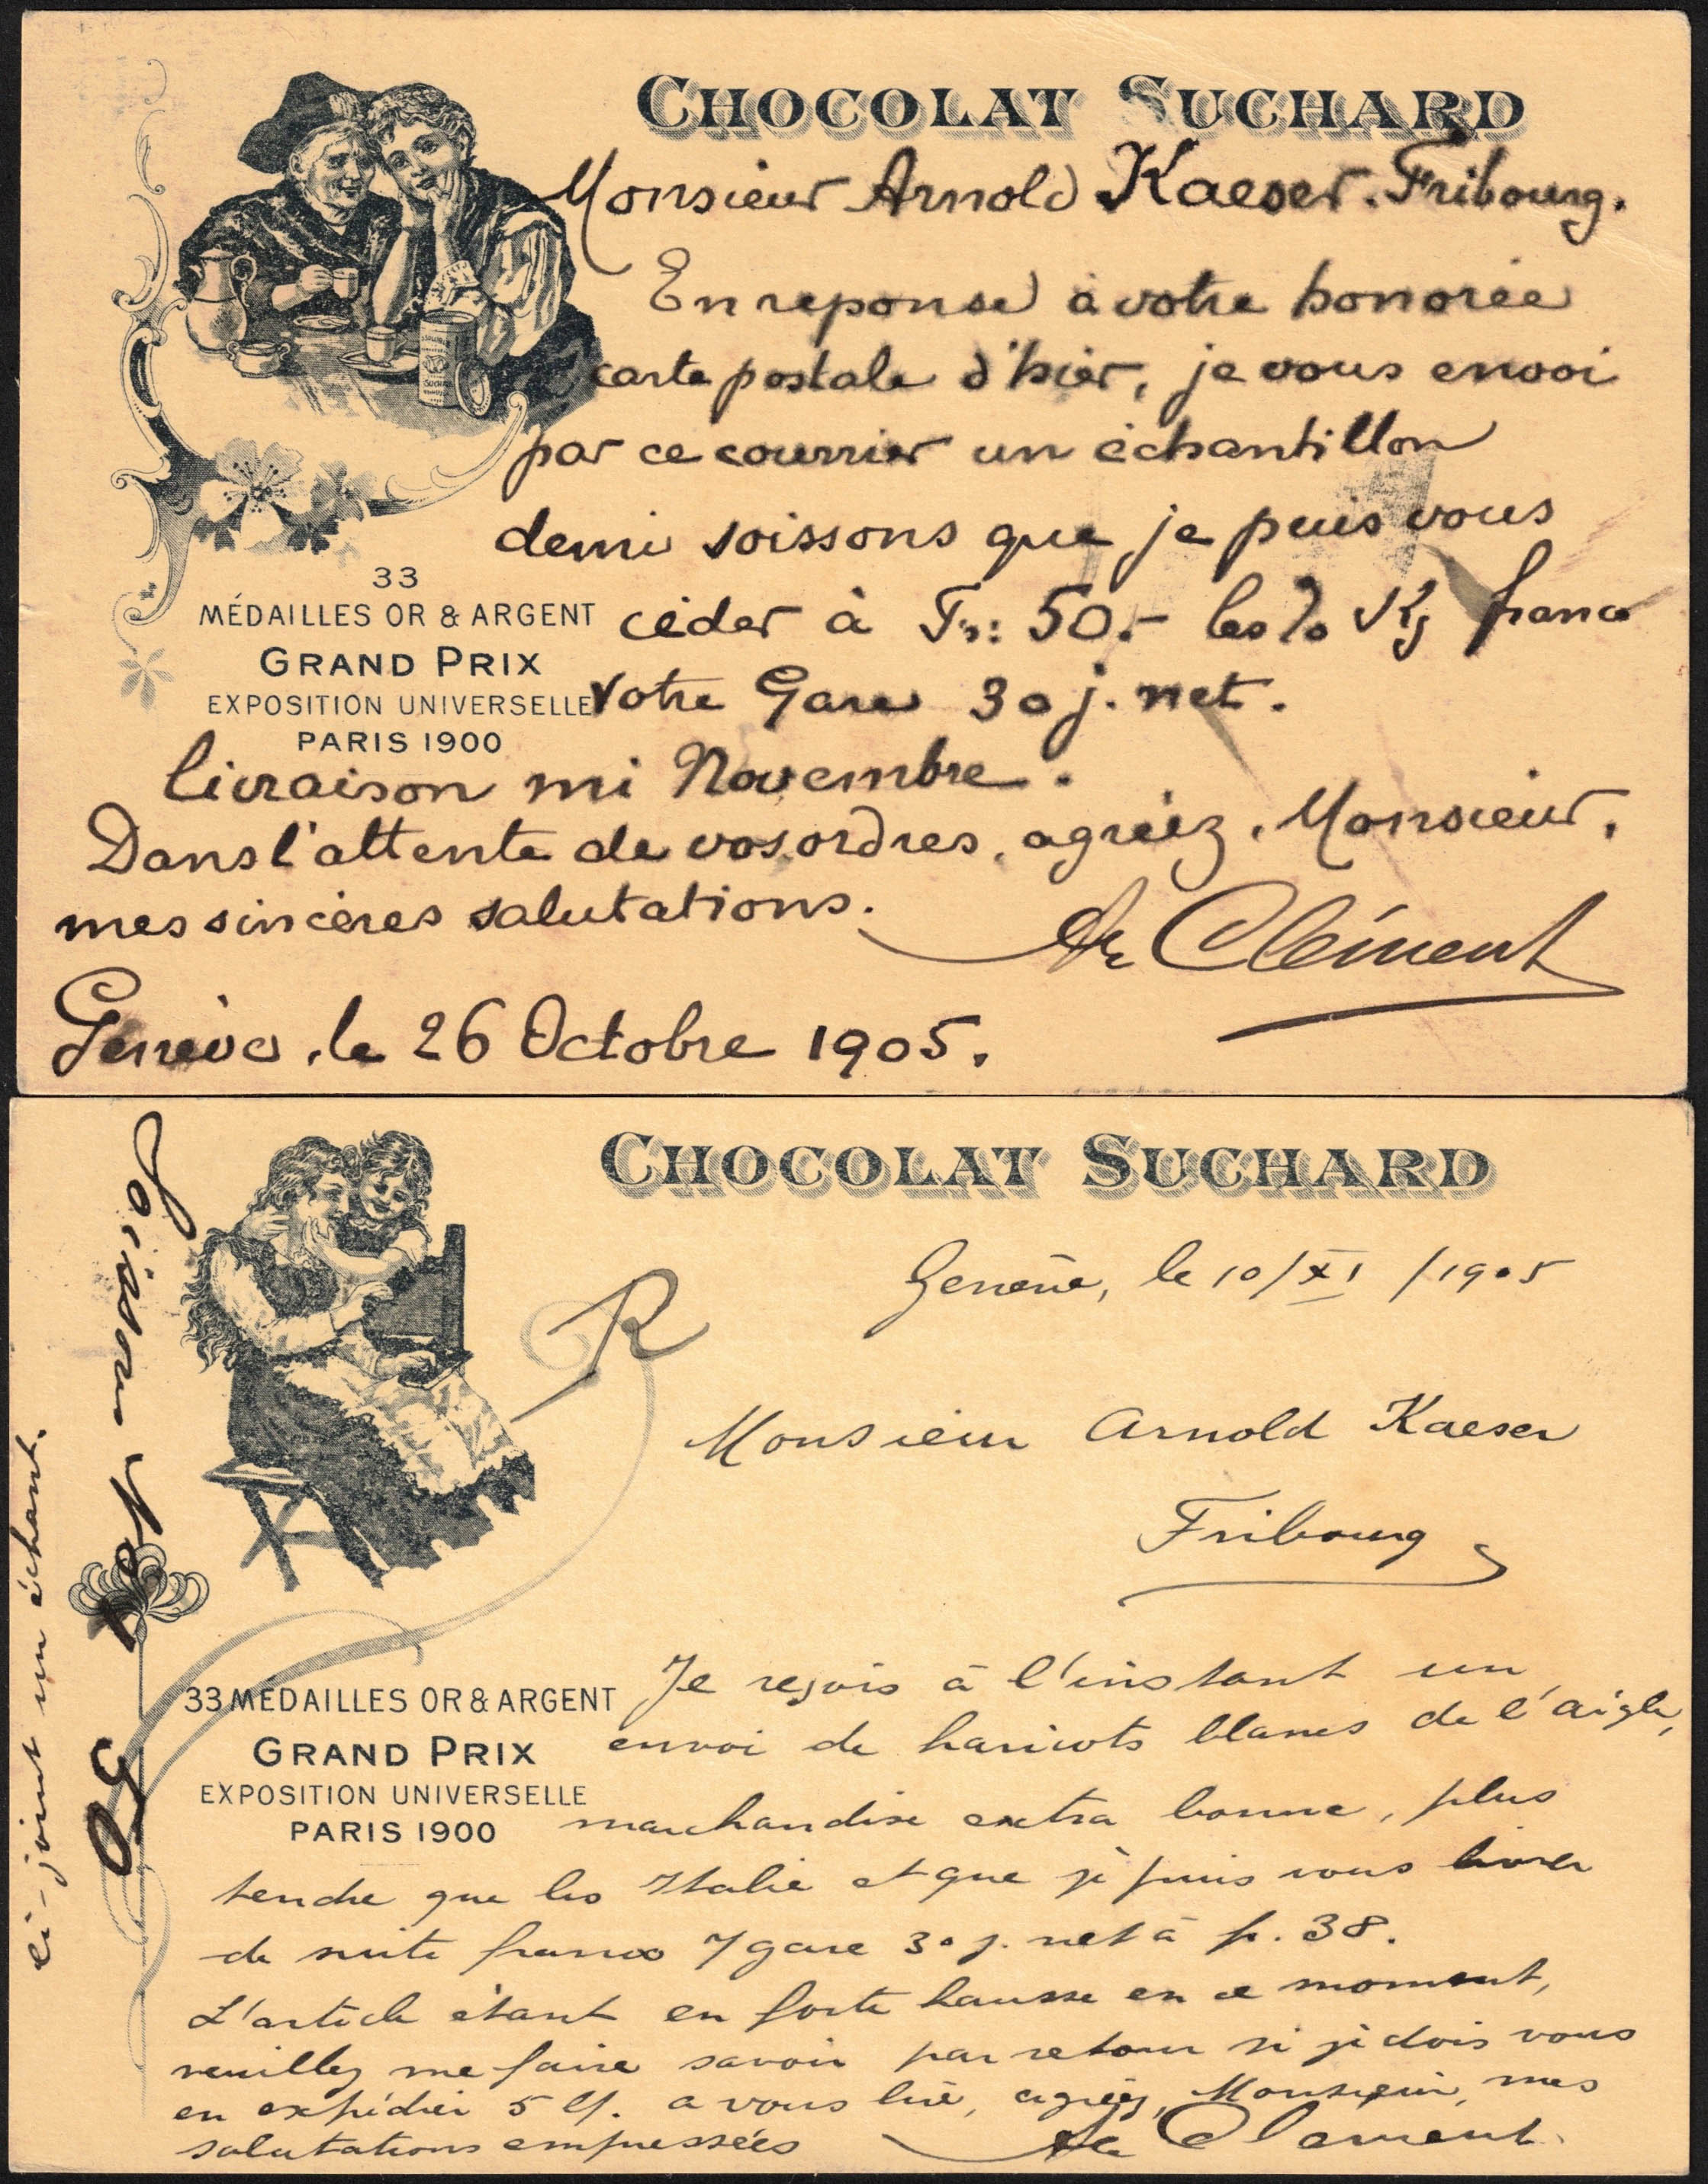 CHOCOLAT SUCHARD
Monsieur Arnold Kaeser. Fribourg.
En reponse à votre honorée
carte postale d'hier, je vous envoi
par ce courrier un échantillon
demi soissons que je puis vous
céder à Fr: 50.- les % Kg franco
votre Gare 30 j. net.
livraison mi Novembre.
Dans l'attente de vos ordres, agréez, Monsieur,
mes sincères salutations.
Clément
Genève, le 26 Octobre 1905.
33
MÉDAILLES OR & ARGENT
GRAND PRIX
EXPOSITION UNIVERSELLE
PARIS 1900
CHOCOLAT SUCHARD
Genève, le 10/XI /1905
R
Monsieur Arnold Kaeser
Fribourg
Je reçois à l'instant un
envoi de haricots blancs de l'aigle,
marchandise extra bonne, plus
tendre que les Italie et que je puis vous livrer
de suite franco gare 30 j. net à fr. 38.
L'article étant en forte hausse en ce moment,
veuillez me faire savoir par retour si je dois vous
en expédier 5 A vous lire, agréez, Monsieur, mes
salutations empressées
Clement
33 MÉDAILLES OR & ARGENT
GRAND PRIX
EXPOSITION UNIVERSELLE
PARIS 1900
Soissons
50
ci-joint un échant.